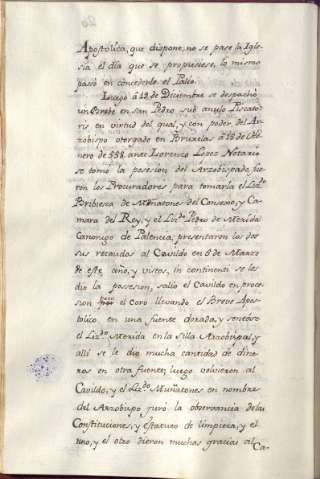 Apostolica, que dispone, no se pase la Igle-
sia el dia que se propusiese, lo mismo
pasó en concederle el Palio.
Luego à 12 de Diciembre se despachó
un Brebe en San Pedro sub anulo Piscato
ris en virtud del qual, y con poder del Ar-
zobispo otorgado en Bruxelas à 18 de
nero de 558. ante Lorenzo Lopez Notario
se tomó la posesion del Arzobispado, fue
ron los Procuradores para tomarla el Lizdo
Bribiesca de Muñatones del Consexo, y Ca-
mara del Rey, y el Lizdo Pedro de Merida
Canonigo de Palencia, presentaron los dos
sus recaudos al Cavildo en 5 de Marzo
de este año, y vistos, in continenti se les
dio la posesion, salió el Cavildo en proce-
sion el Coro llevando el Breve Apos-
tolico en una fuente dorada, y sentóse
el Lizdo Merida en la Silla Arzobispal, y
alli se le dio mucha cantidad de dine
ros en otra fuente; luego volvieron al
Cavildo, y el Lizdo Muñatones en nombre
del Arzobispo juró la observancia de las
Constituciones, y estatuto de limpieza, y el
uno, y el otro dieron muchas gracias al Ca-